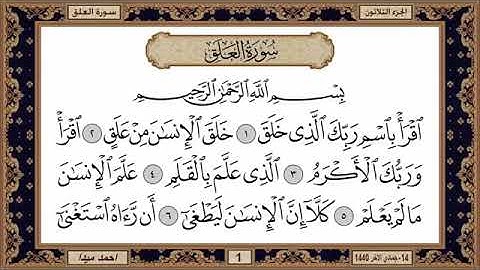 الجزء الثلاثون
سورة العلق
سُورَةُ الْعَلَقِ
بِسْمِ ٱللَّهِ ٱلرَّحْمَٰنِ ٱلرَّحِيمِ
ٱقْرَأْ بِٱسْمِ رَبِّكَ ٱلَّذِى خَلَقَ ١ خَلَقَ ٱلْإِنسَٰنَ مِنْ عَلَقٍ ٢ ٱقْرَأْ
وَرَبُّكَ ٱلْأَكْرَمُ ٣ ٱلَّذِى عَلَّمَ بِٱلْقَلَمِ ٤ عَلَّمَ ٱلْإِنسَٰنَ
مَا لَمْ يَعْلَمْ ٥ كَلَّآ إِنَّ ٱلْإِنسَٰنَ لَيَطْغَىٰٓ ٦ أَن رَّءَاهُ ٱسْتَغْنَىٰٓ
14-جمادي الآخر 1440
1
أحمد